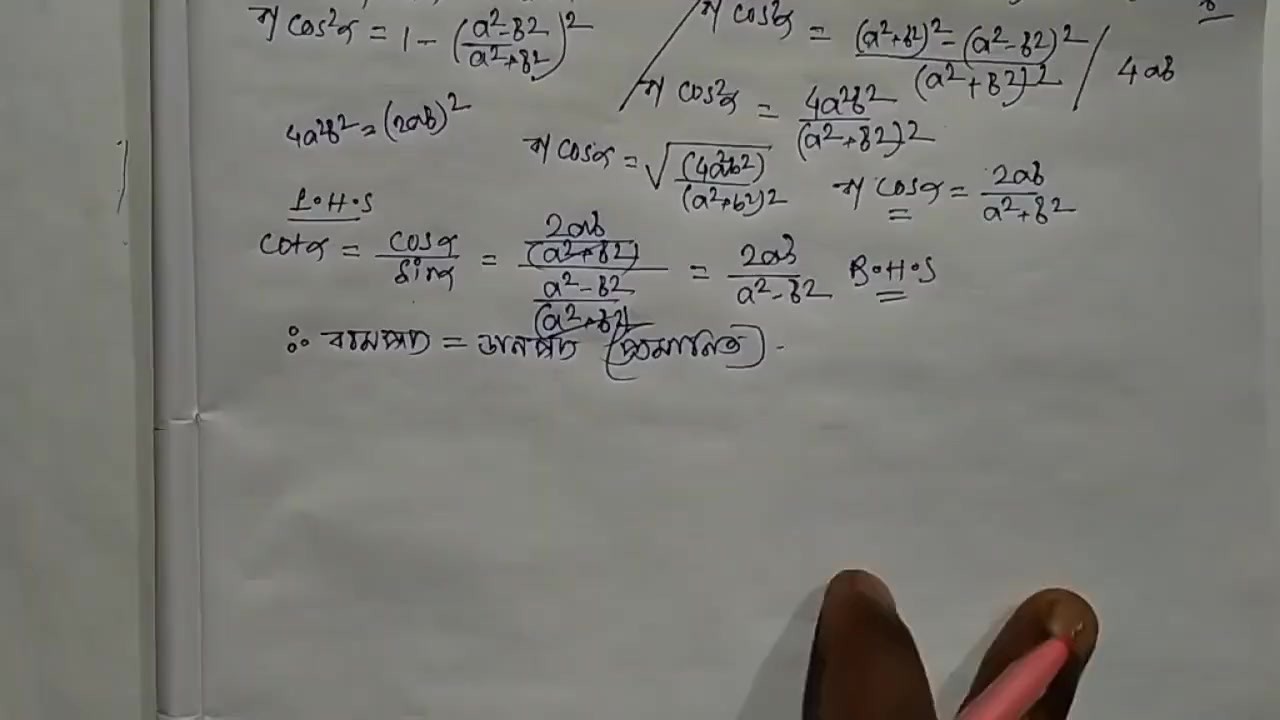 বা cos²α = 1 - (a²-b2/a²+b2)²
বা cos²α = (a²+b2)²-(a²-b2)²/(a²+b2)2 / 4ab
বা cos²α = 4a²b2/(a²+b2)2
4a²b² = (2ab)²
বা cosα = √(4a²b2)/(a²+b2)2
বা cosα = 2ab/a²+b2
L.H.S
cotα = cosα/sinα = 2ab/(a²+b2)/a²-b2/(a²+b2) = 2ab/a²-b2 R.H.S
∴ বামপক্ষ = ডানপক্ষ (প্রমানিত)